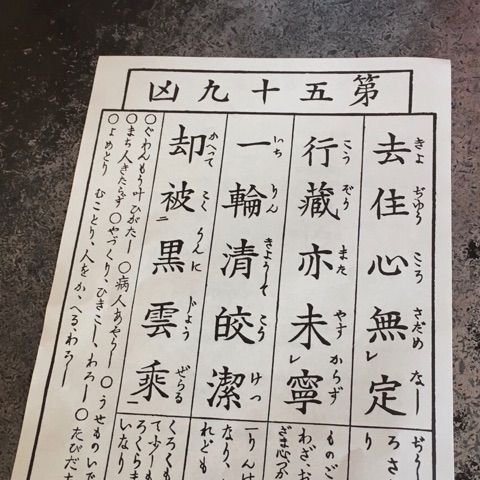 第五十九凶
去住心無レ定
きよ ぢゆう こころ さだめ なし
行藏亦未レ寧
こう ぞう また やす からず
一輪清皎潔
いち りん きようして こう けつ
却被二黒雲乘一
かへって こく うんに じょう ぜらる
ろさ
り
ものご
わざ、お
ざま心づか
一りんけ
なり、
れども
くろくも
て少しも
ろくらき
いなり
○ぐわんもう叶ひがたし ○病人あやうし ○うせものいで
○まち人きたらず ○やづくり、ひきこし、わろし ○たびだ
○よめとり むことり、人をかゝへる、わろし